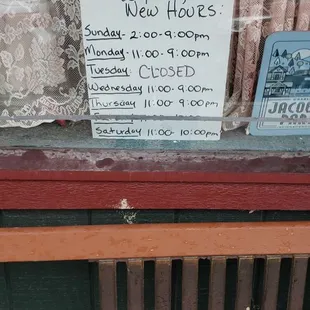 New Hours:
Sunday - 2:00-9:00pm
Monday - 11:00-9:00pm
Tuesday CLOSED
Wednesday 11:00-9:00pm
Thursday 11:00-9:00pm
Friday 11:00-10:00pm
Saturday 11:00-10:00pm